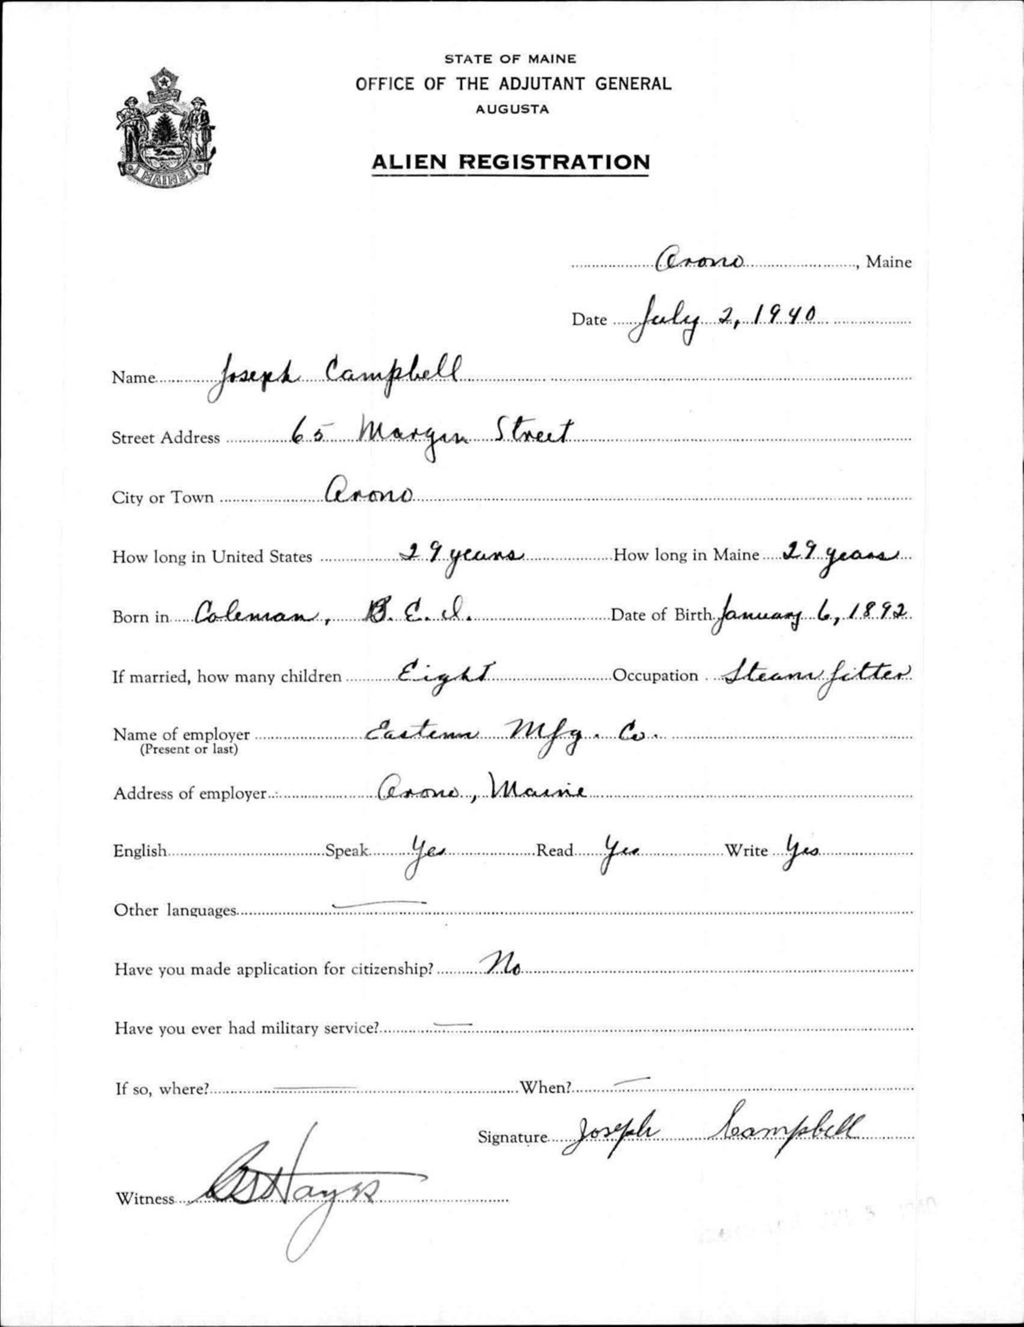 STATE OF MAINE
OFFICE OF THE ADJUTANT GENERAL
AUGUSTA
ALIEN REGISTRATION
MAINE
Orono, Maine
Date July 2, 1940
Name Joseph Campbell
Street Address 65 Margin Street
City or Town Orono
How long in United States 29 years How long in Maine 29 years
Born in Coleman, P. E. I. Date of Birth January 6, 1892
If married, how many children Eight Occupation Steam fitter
Name of employer Eastern Mfg. Co.
(Present or last)
Address of employer Orono, Maine
English Speak Yes Read Yes Write Yes
Other languages —
Have you made application for citizenship? No
Have you ever had military service? —
If so, where? — When? —
Signature Joseph Campbell
Witness Hayes